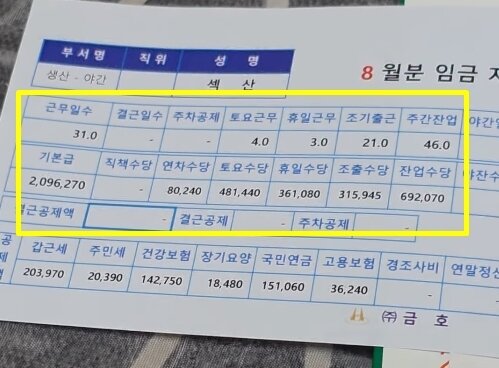 부서명 직위 성 명
생산 - 야간 섹 산
8 월분 임금 지
근무일수 결근일수 주차공제 토요근무 휴일근무 조기출근 주간잔업 야간잔
31.0 - 4.0 3.0 21.0 46.0
기본급 직책수당 연차수당 토요수당 휴일수당 조출수당 잔업수당 야잔수
2,096,270 - 80,240 481,440 361,080 315,945 692,070
결근공제액 - 결근공제 - 주차공제 -
공제액 갑근세 주민세 건강보험 장기요양 국민연금 고용보험 경조사비 연말정산
203,970 20,390 142,750 18,480 151,060 36,240 -
㈜ 금 호